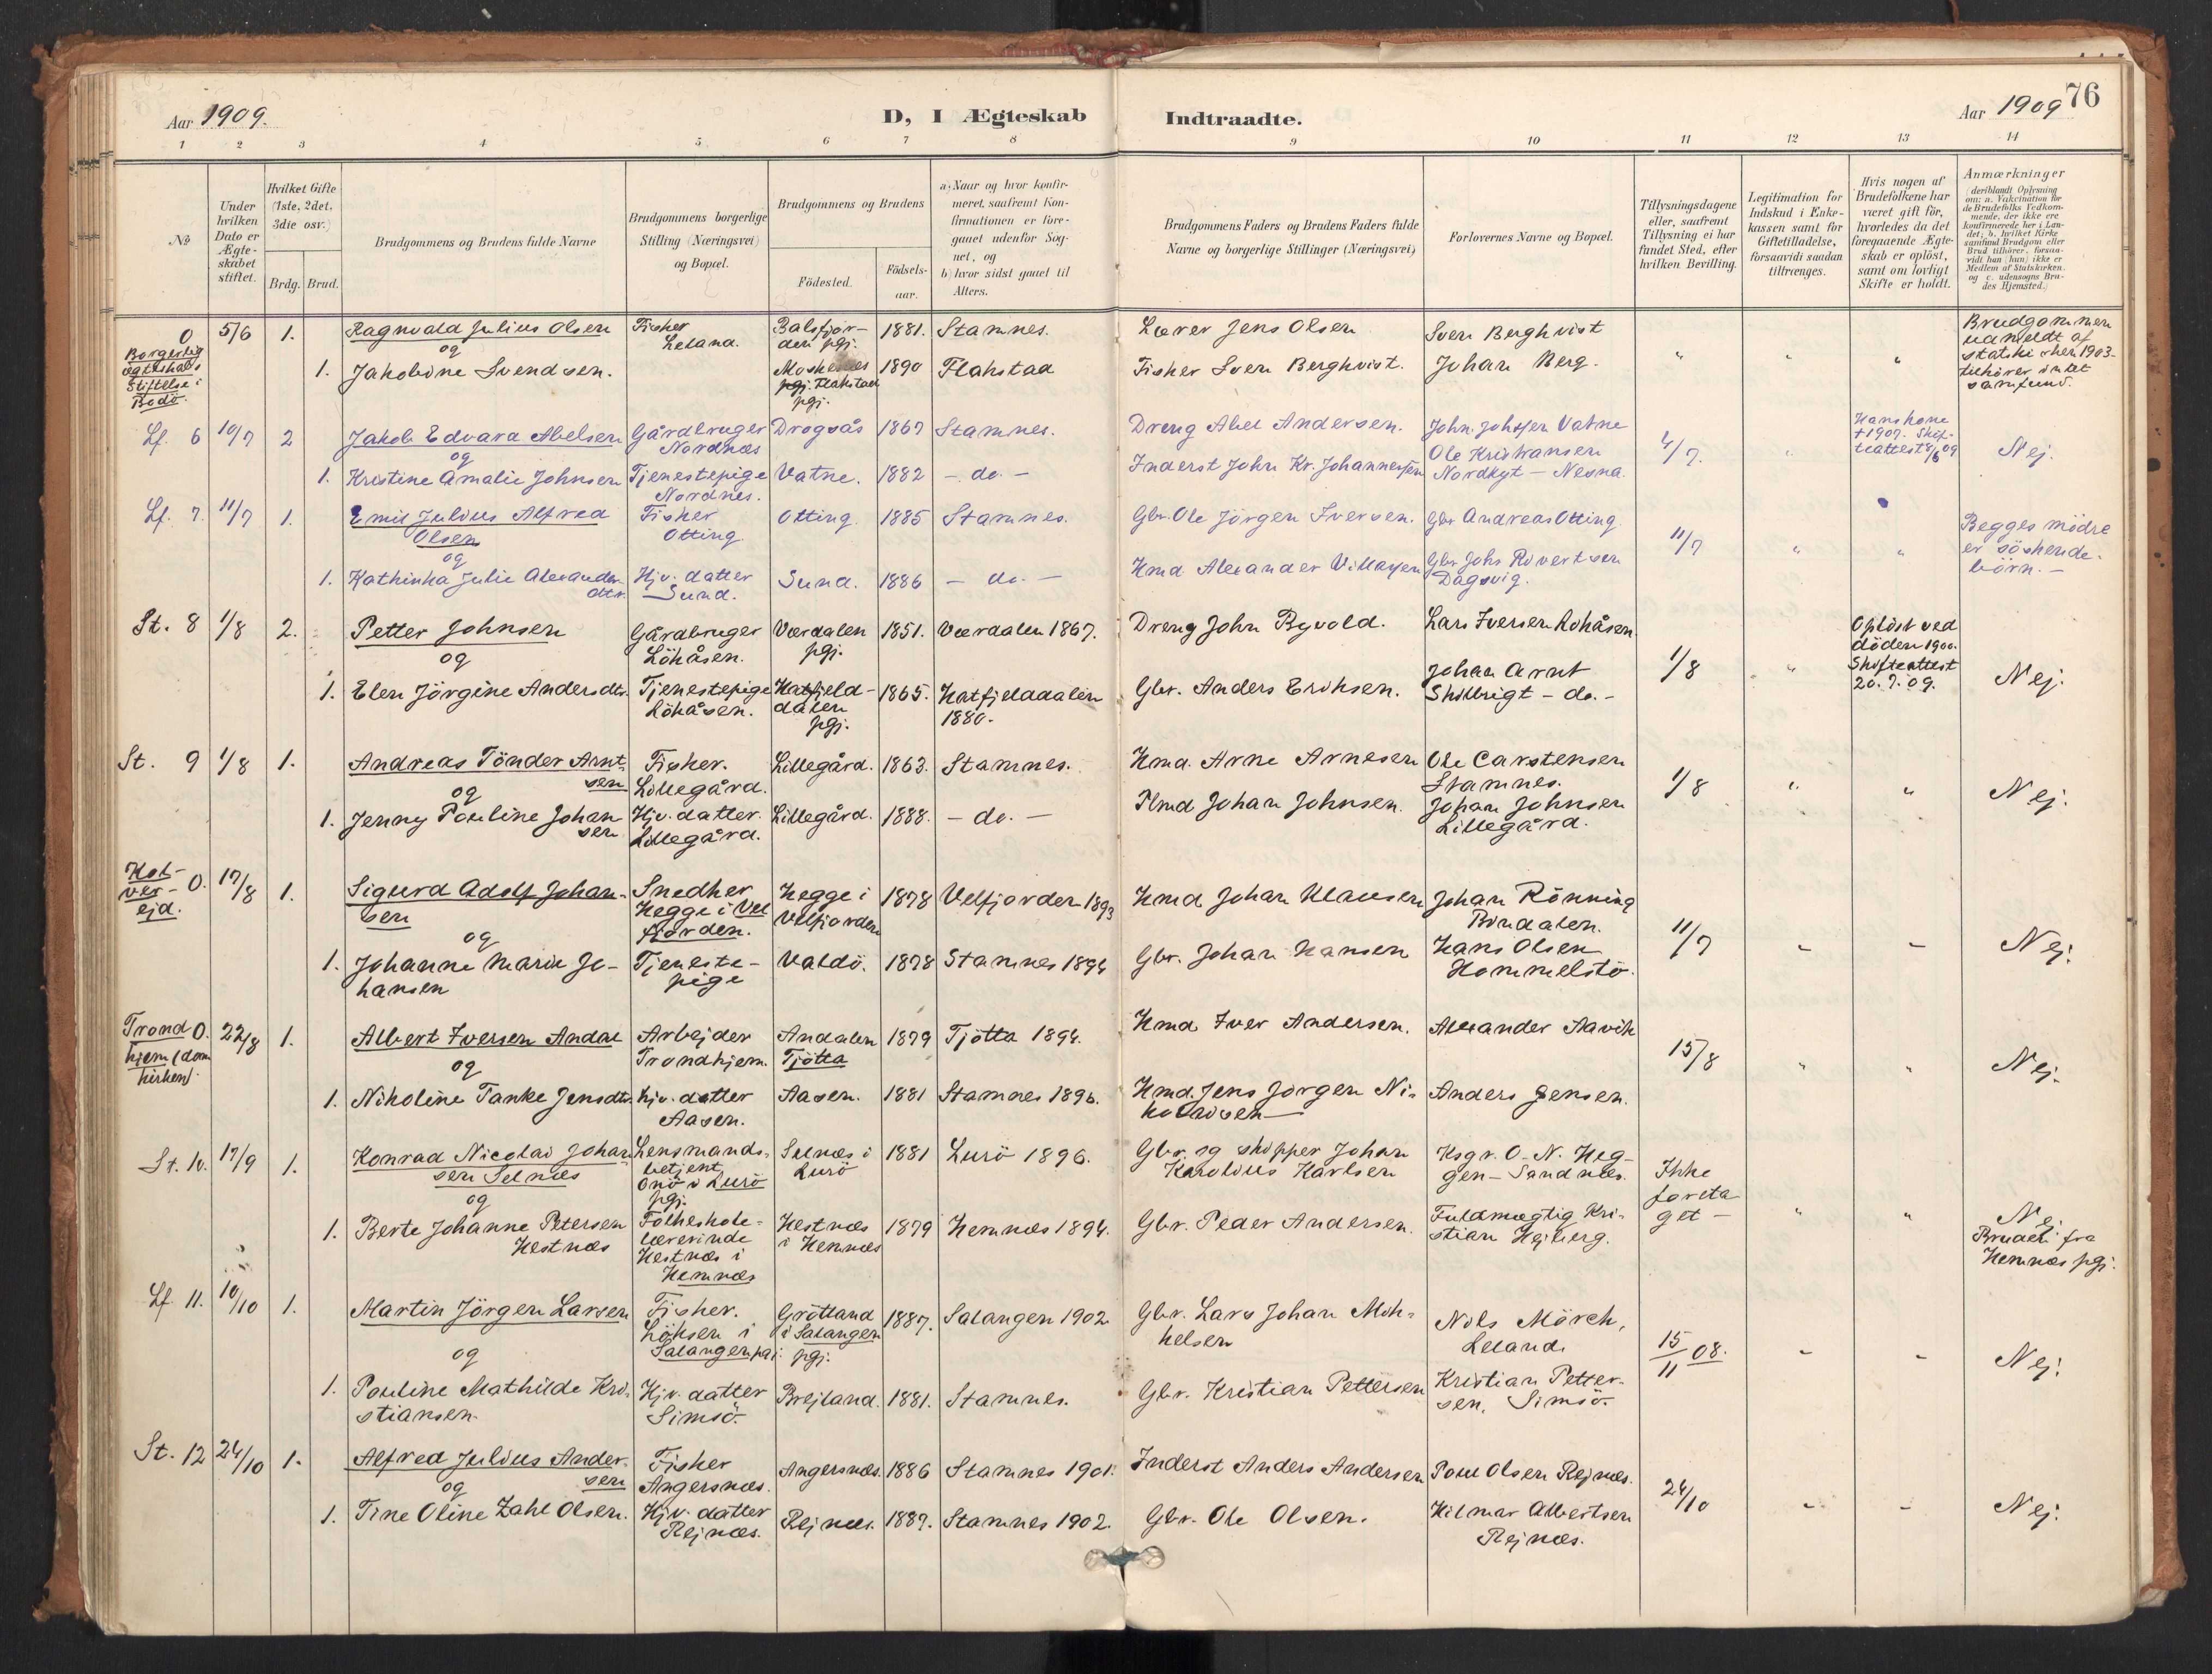 76
Aar 1909.
D, I Ægteskab Indtraadte.
Aar 1909
1 2 3 4 5 6 7 8 9 10 11 12 13 14
No
Under hvilken Dato er Ægte-skabet stiftet.
Hvilket Gifte (1ste, 2det, 3die osv.)
Brdg. Brud.
Brudgommens og Brudens fulde Navne
Brudgommens borgerlige Stilling (Næringsvei) og Bopæl.
Brudgommens og Brudens
Fødested.
Fødsels-aar.
a) Naar og hvor konfir-meret, saafremt Kon-firmationen er fore-gaaet udenfor Sog-net, og
b) hvor sidst gaaet til Alters.
Brudgommens Faders og Brudens Faders fulde Navne og borgerlige Stillinger (Næringsvei)
Forlovernes Navne og Bopæl.
Tillysningsdagene eller, saafremt Tillysning ei har fundet Sted, efter hvilken Bevilling.
Legitimation for Indskud i Enke-kassen samt for Giftetilladelse, forsaavidt saadan tiltrænges.
Hvis nogen af Brudefolkene har været gift før, hvorledes da det foregaaende Ægte-skab er opløst, samt om lovligt Skifte er holdt.
Anmærkninger
(deriblandt Oplysning om: a. Vakcination for de Brudefolks Vedkom-mende, der ikke ere konfirmerede her i Lan-det; b. hvilket Kirke samfund Brudgom eller Brud tilhører, forsaa-vidt han (hun) ikke er Medlem af Statskirken. og c. udensogns Bru-des Hjemsted.)
0 5/6 1. Ragnvald Julius Olsen Fisker Leland. Balsfjor-den pgj. 1881. Stamnes. Lærer Jens Olsen Sven Berghvist
Borgerlig ægteskabs Stiftelse i Bodö.
og
1. Jakobine Svendsen. Moskenes pgj. Flakstad pgj. 1890 Flakstad Fisker Sven Berghvist. Johan Berg. " " "
Brudgommen udmeldt af statskirken 1903 - tilhører intet samfund.
Lf. 6 10/7 2 Jakob Edvard Abelsen Gårdbruger Nordnæs Drogsås 1867 Stamnes. Dreng Abel Andersen. John Johssen Vatne
og
1. Kristine Amalie Johnsen Tjenestepige Nordnes. Vatne. 1882 - do. - Inderst John Kr. Johannessen Ole Kristiansen Nordkyt - Nesna. 4/7. "
Hans kone † 1907. Skif-teattest 8/6 09
Nej.
Lf. 7. 11/7 1. Emil Julius Alfred Olsen Fisker Otting. Otting. 1885 Stamnes. Gbr. Ole Jörgen Iversen. Gbr Andreas Otting
og
1. Kathinka Julie Alexander dtr. Hjv. datter Sund. Sund. 1886 - do. - Kmd. Alexander Villassen Gbr Johs Rivertsen Dagsvig. 11/7 " "
Begges mödre er söskende-börn. -
St. 8 1/8 2. Petter Johnsen Gårdbruger Löhåsen. Værdalen pgj. 1851. Værdalen 1867. Dreng John Byvold. Lars Iversen Lohåsen.
og
1. Elen Jörgine Andersdtr. Tjenestepige Löhåsen. Hatfjeld-dalen pgj. 1865. Hatfjelddalen 1880. Gbr. Anders Eriksen. Johan Arnt Skillrigt - do. - 1/8 "
Oplöst ved döden 1900. Skifteattest 20.7.09.
Nej.
St. 9 1/8 1. Andreas Tönder Arnt-sen Fisker. Lillegård. Lillegård. 1863. Stamnes. Kmd. Arne Arnesen Ole Carstensen Stamnes.
og
1. Jenny Pauline Johan sen Hjv. datter. Lillegård. Lillegård. 1888. - do. - Kmd Johan Johnsen. Johan Johnsen Lillegård. 1/8 " " Nej.
0. 17/8 1. Sigurd Adolf Johan-sen Snedker Hegge i Vel fjorden. Hegge i Velfjorden 1878 Velfjorden 1893 Kmd Johan Klausen Johan Rönning Bindalen.
og
1. Johanne Marie Jo-hansen Tjeneste-pige Valdö. 1878 Stamnes 1894 Gbr. Johan Hansen Hans Olsen Hommelstö. 11/7 - - Nej.
Trond hjem (dom kirken). 0. 22/8 1. Albert Iversen Andal Arbejder Trondhjem. Andalen Tjötta 1879 Tjötta 1894. Kmd Iver Andersen. Alexander Aavik
og
1. Nikoline Tanke Jensdtr. Hjv. datter Aasen. Aasen. 1881 Stamnes 1896. Kmd. Jens Jörgen Ni-kolaisen Anders Jensen. 15/8 " " Nej.
St. 10. 17/9 1. Konrad Nicolai Johan sen Selnæs Lensmands-betjent Onö i Lurö pgj. Selnæs i Lurö 1881 Lurö 1896. Gbr. og skipper Johan Karolius Karlsen Ksgr. O. N. Heg-gen - Sandnæs.
og
1. Berte Johanne Petersen Hestnæs Folkeskole-lærerinde Hestnæs i Hemnæs Hestnæs i Hemnæs 1879 Hemnæs 1894. Gbr. Peder Andersen. Fuldmægtig Kri-stian Hejberg. Ikke foreta get - " "
Nej. Bruden fra Hemnæs pgj.
Lf 11. 10/10 1. Martin Jörgen Larsen Fisker. Löksen i Salangen pgj. Grötland i Salangen pgj. 1887. Salangen 1902 Gbr. Lars Johan Mik-kelsen Nils Mörch, Leland.
og
1. Pauline Mathilde Kri-stiansen. Hjv. datter Simsö. Brejland. 1881. Stamnes. Gbr. Kristian Pettersen Kristian Petter-sen, Simsö. 15/11 08. - - Nej.
St. 12 24/10 1. Alfred Julius Ander-sen Fisker Angersnæs. Angersnæs. 1886 Stamnes 1901. Inderst Anders Andersen Poul Olsen Rejnæs.
og
1. Tine Oline Zahl Olsen. Hjv. datter Rejnæs. Rejnæs. 1887. Stamnes 1902. Gbr. Ole Olsen. Hilmar Albertsen Rejnæs. 24/10 - - Nej.